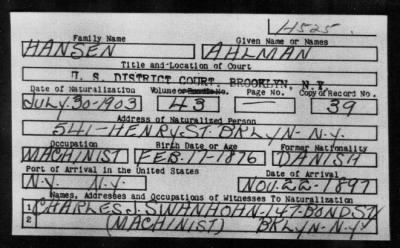 H525.
Family Name Given Name or Names
HANSEN AHLMAN
Title and Location of Court
U. S. DISTRICT COURT, BROOKLYN, N.Y.
Date of Naturalization Volume or Bundle No. Page No. Copy of Record No.
JULY-30-1903 43 — 39
Address of Naturalized Person
541-HENRY-ST. BRLYN-N.Y.
Occupation Birth Date or Age Former Nationality
MACHINIST FEB-11-1876 DANISH
Port of Arrival in the United States Date of Arrival
N.Y. N.Y. NOV-22-1897
Names, Addresses and Occupations of Witnesses To Naturalization
1 CHARLES J. SWANHOHN-147-BOND ST
2 (MACHINIST) BRLYN-N.Y.